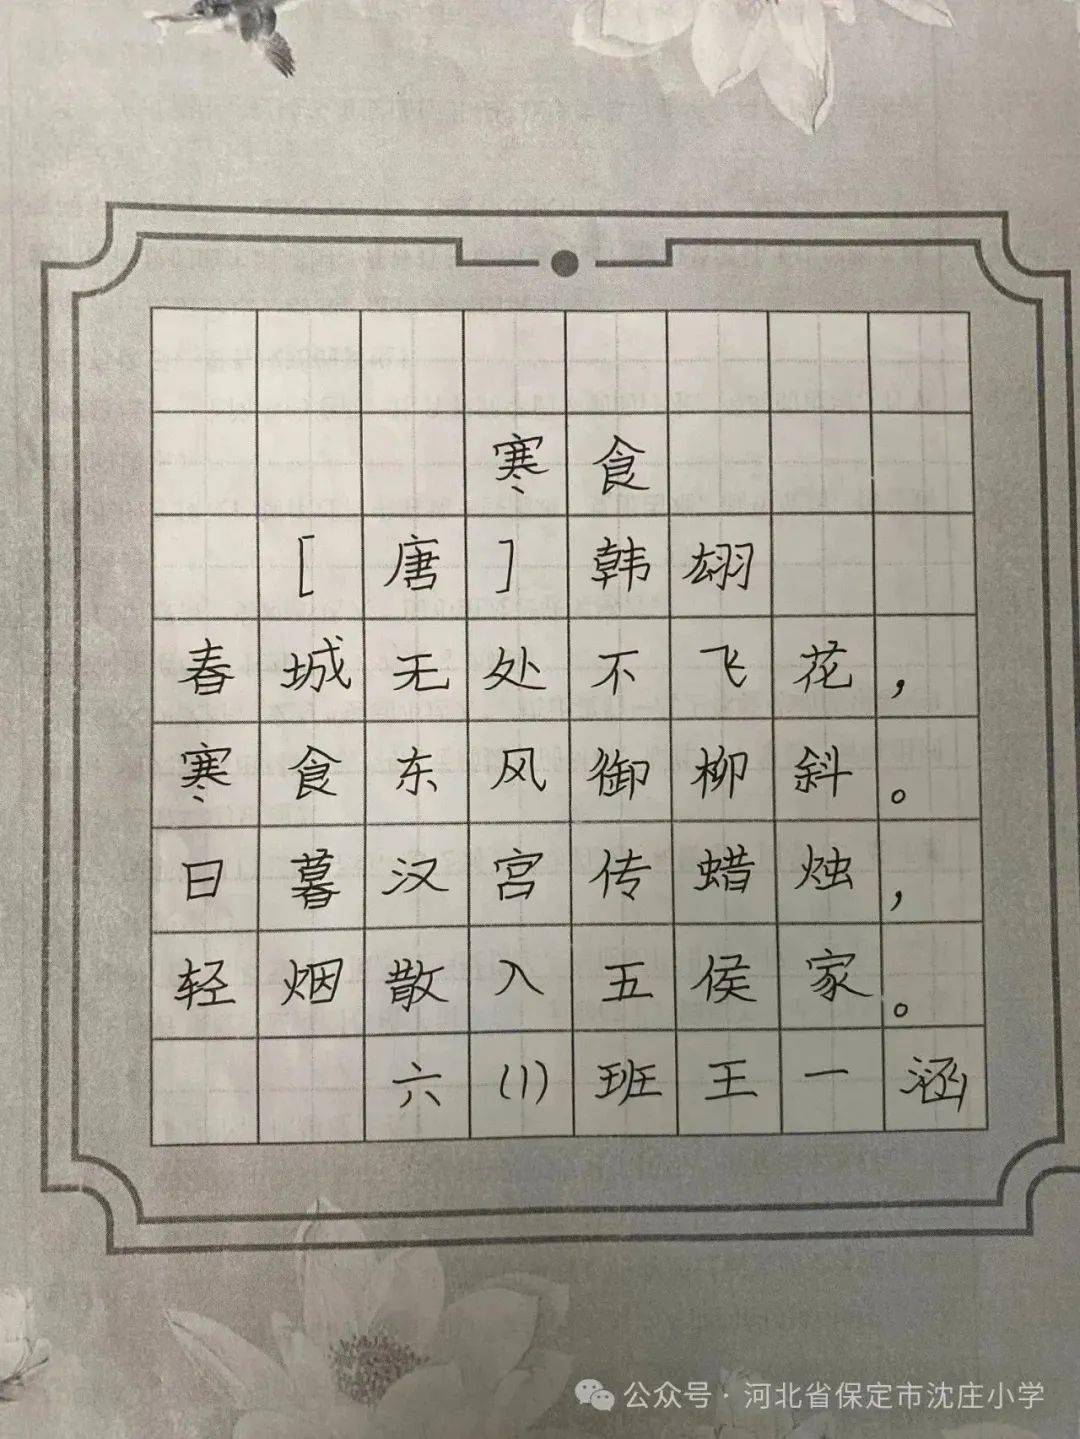 寒食
[唐]韩翃
春城无处不飞花,
寒食东风御柳斜。
日暮汉宫传蜡烛,
轻烟散入五侯家。
六(1)班王一涵
公众号·河北省保定市沈庄小学